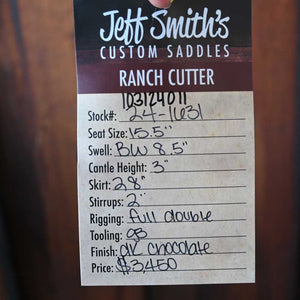 Jeff Smith's
CUSTOM SADDLES
RANCH CUTTER
103124011
Stock#: 24-1631
Seat Size: 15.5"
Swell: BW 8.5"
Cantle Height: 3"
Skirt: 28"
Stirrups: 2"
Rigging: full double
Tooling: gB
Finish: dk chocolate
Price: $3,450